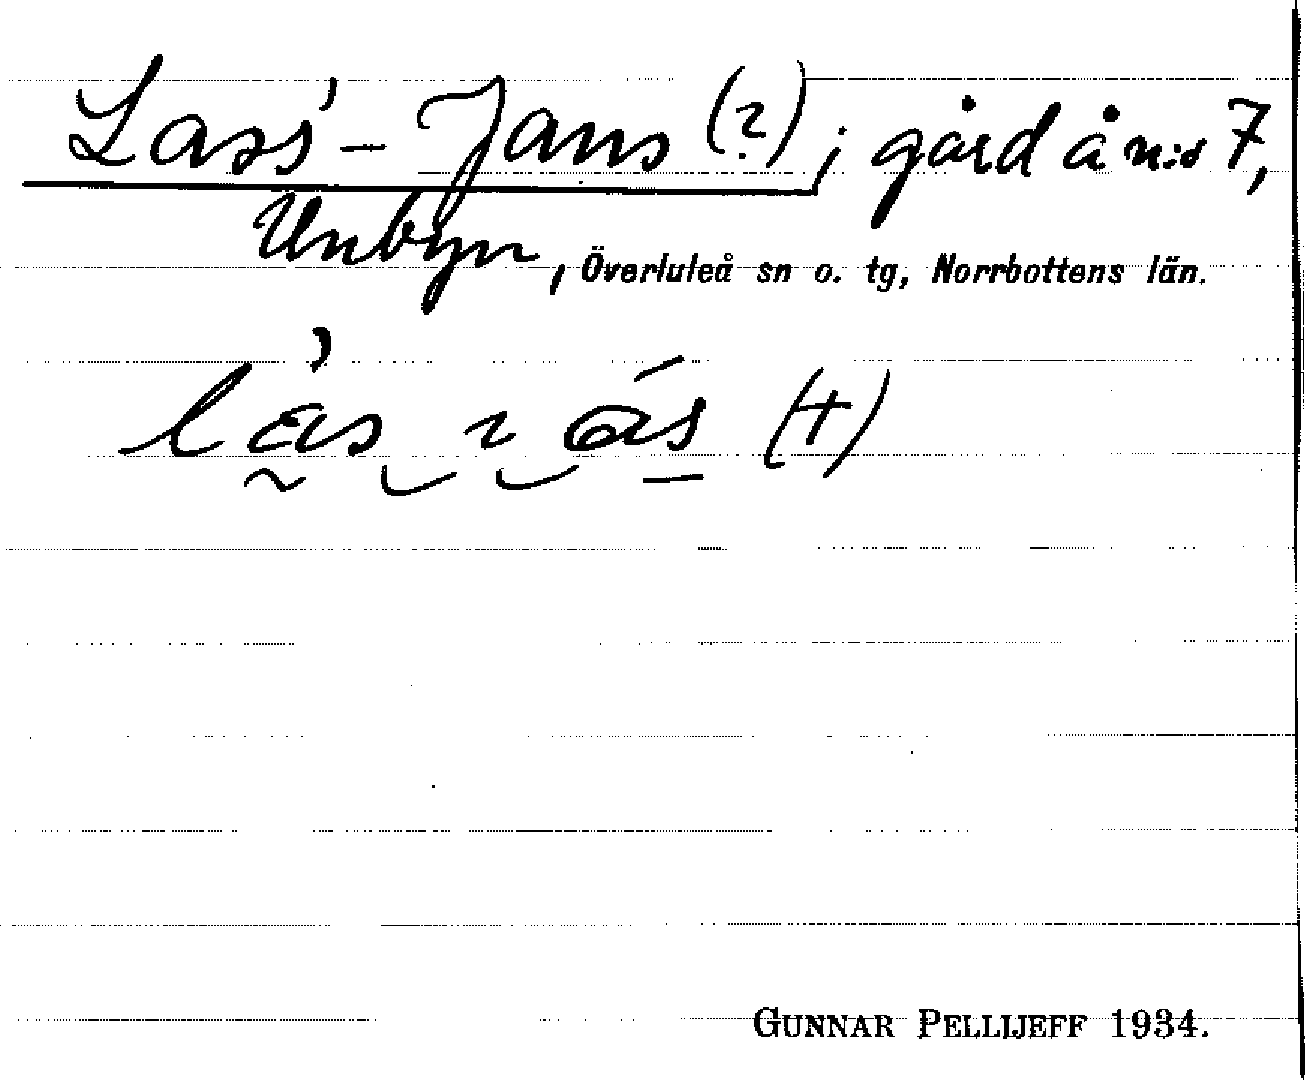 Lass'-Jans (?); gård å n:o 7,
Unbyn, Överluleå sn o. tg, Norrbottens län.
(+)
GUNNAR PELLIJEFF 1934.